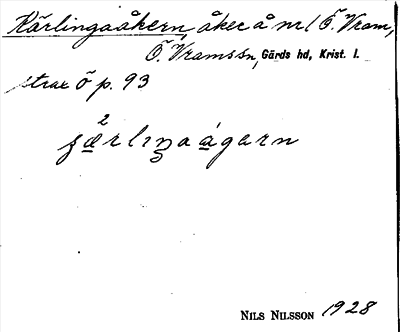 Kärlingaåkern, åker å nr 1 Ö. Vram,
Ö. Vramssn, Gärds hd, Krist. l.
strax ö p. 93
²ȷærlıŋaágarn
NILS NILSSON 1928